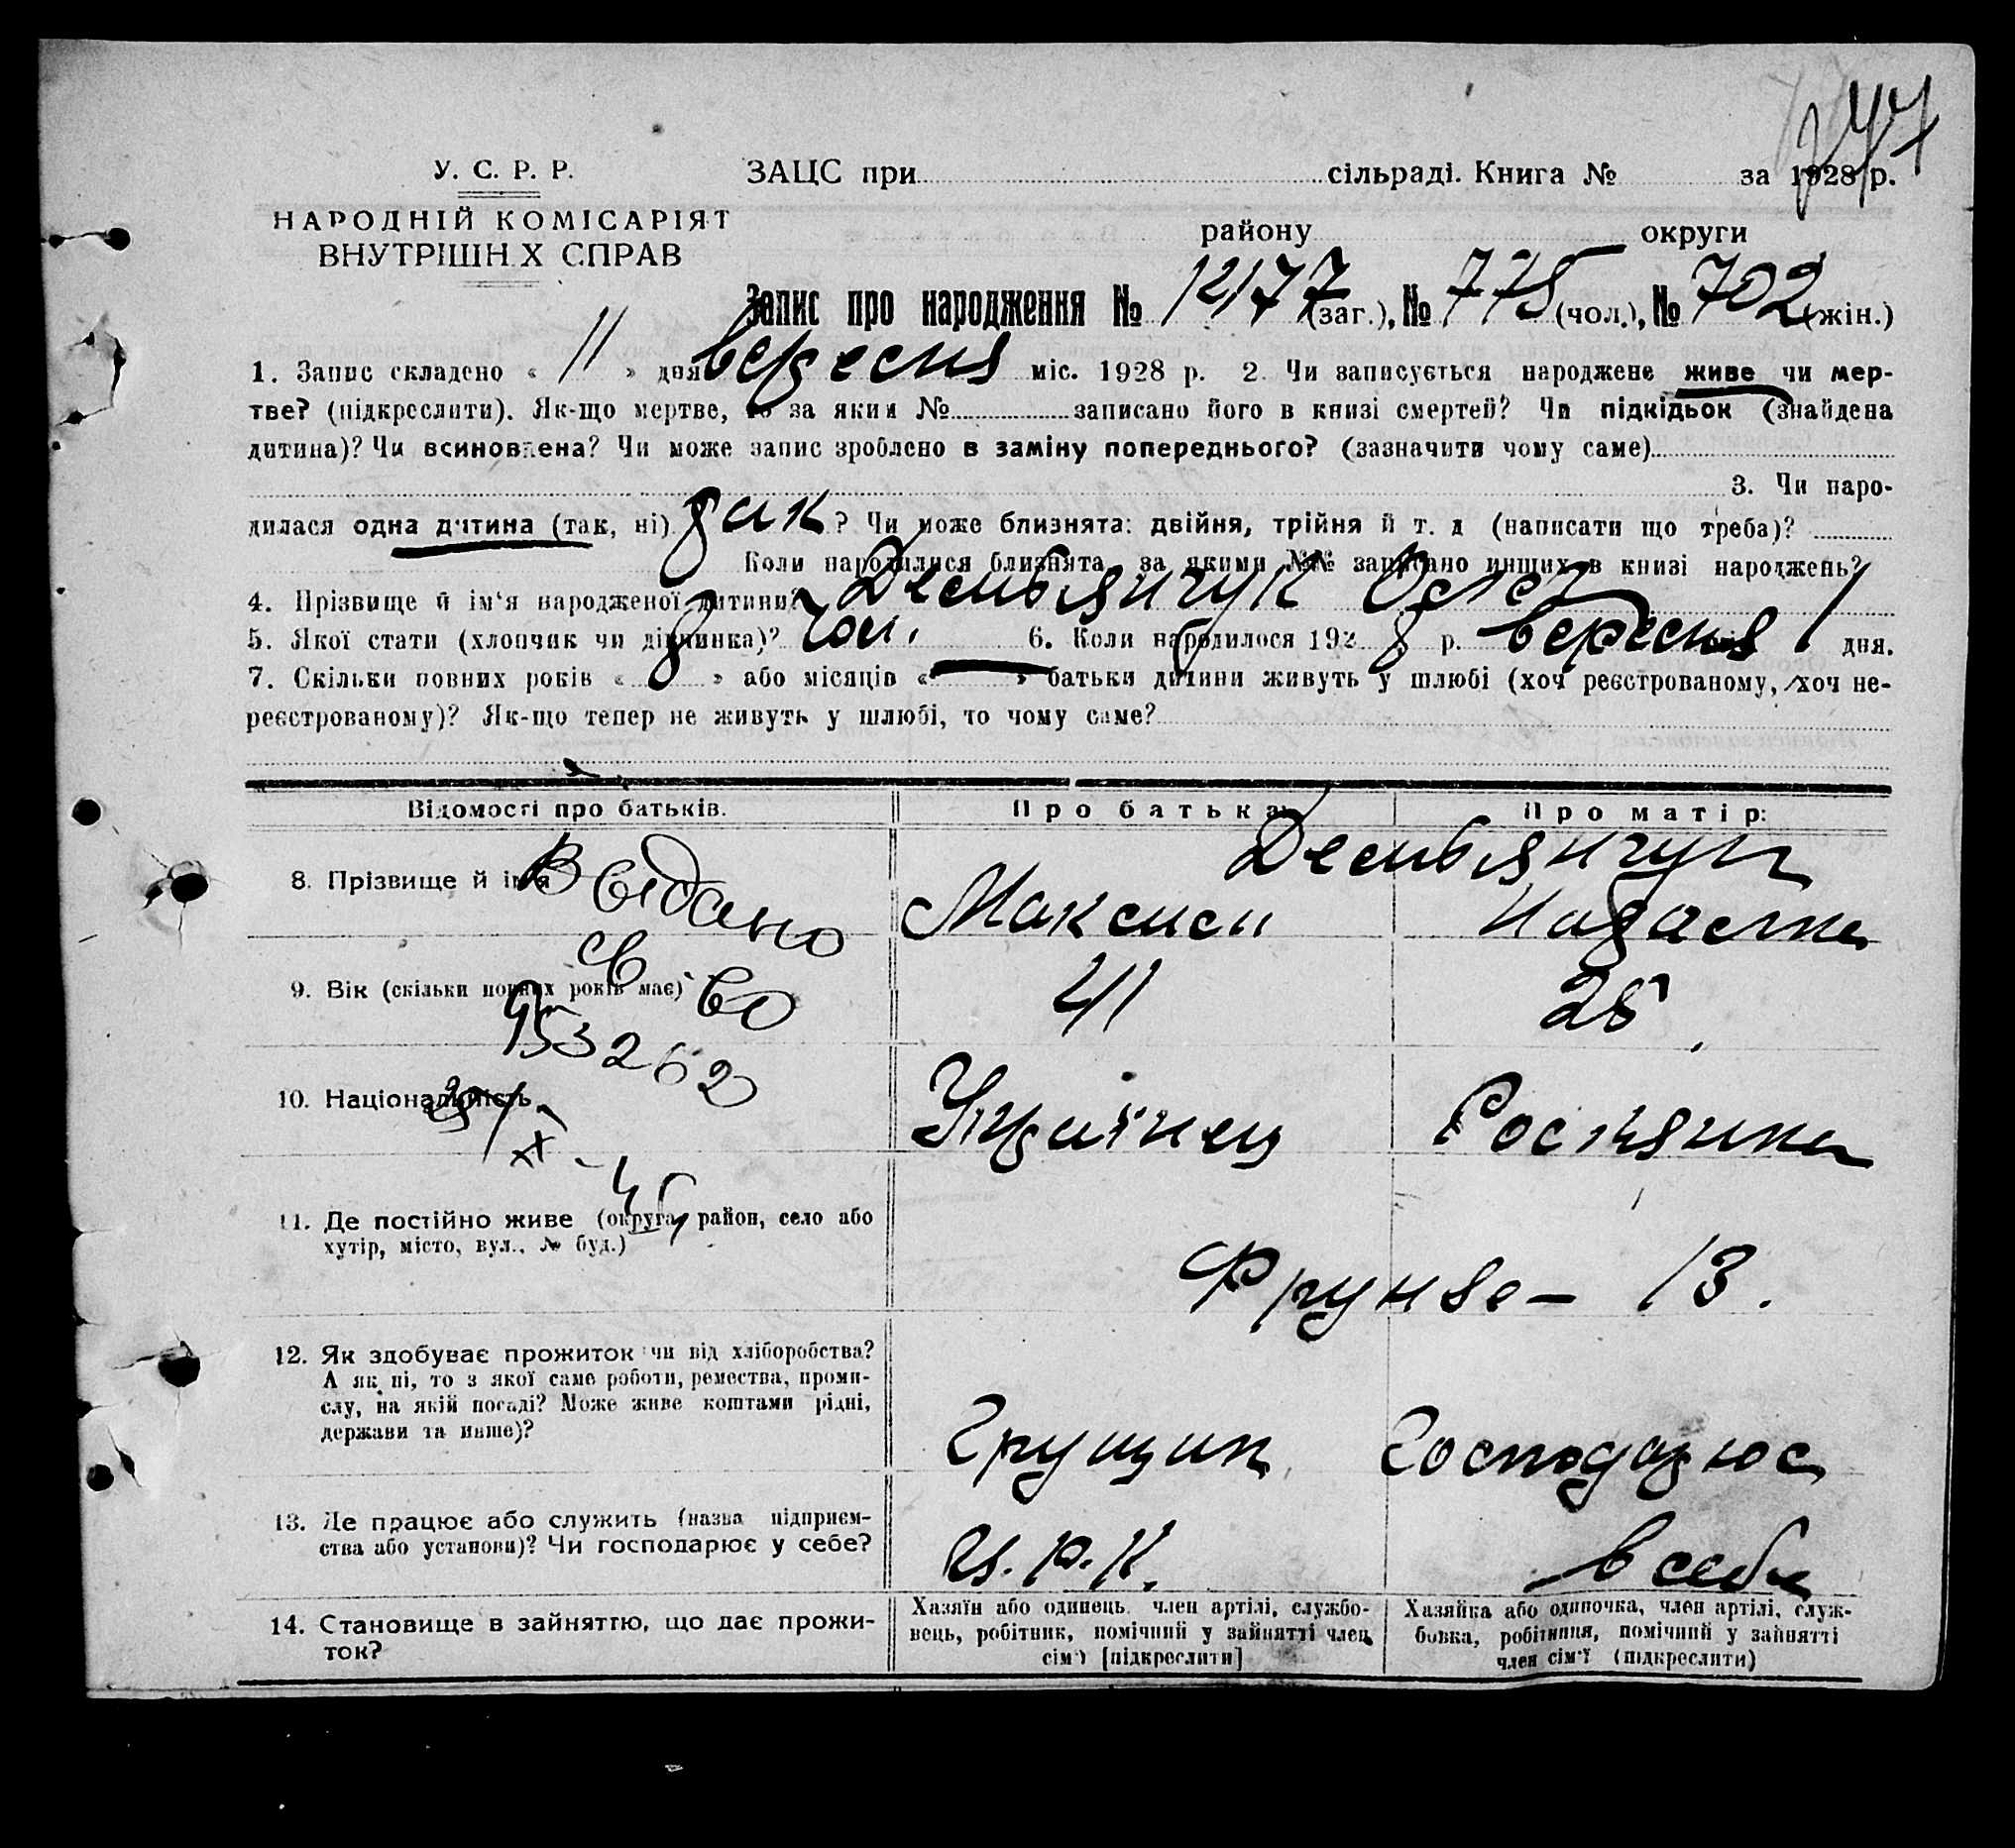 744
У. С. Р. Р.
ЗАЦС при сільраді. Книга № за 1928 р.
НАРОДНІЙ КОМІСАРІЯТ
ВНУТРІШН.Х СПРАВ
району округи
Запис про народження № 12177 (заг.), № 775 (чол.), № 702 (жін.)
1. Запис складено « 11 » дня вересня міс. 1928 р. 2. Чи записується народжене живе чи мер-
тве? (підкреслити). Як-що мертве, то за яким № записано його в книзі смертей? Чи підкідьок (знайдена
дитина)? Чи всиновлена? Чи може запис зроблено в заміну попереднього? (зазначити чому саме)
3. Чи наро-
дилася одна дитина (так, ні) так ? Чи може близнята: двійня, трійня й т. д (написати що треба)?
Коли народилися близнята за якими №№ записано инших в книзі народжень?
4. Прізвище й ім'я народженої дитини? Демьянчук Олег
5. Якої стати (хлопчик чи дівчинка)? чол. 6. Коли народилося 1928 р. вересня 1 дня.
7. Скільки повних років « 8 » або місяців « — » батьки дитини живуть у шлюбі (хоч реєстрованому, хоч не-
реєстрованому)? Як-що тепер не живуть у шлюбі, то чому саме?
Відомості про батьків. Про батька: Про матір:
Демьянчук
8. Прізвище й ім'я Максим
Видано
св во
9. Вік (скільки повних років має) 41 28
953262
10. Національність Українец Росіянка
11. Де постійно живе (округа, район, село або
хутір, місто, вул., № буд.)
Фрунзе — 13.
12. Як здобуває прожиток чи від хліборобства?
А як ні, то з якої саме роботи, ремества, проми-
слу, на якій посаді? Може живе коштами рідні,
держави та инше)?
Грущик Господарює
13. Де працює або служить (назва підприєм-
ства або установи)? Чи господарює у себе?
Ц.Р.К. в себе
14. Становище в зайняттю, що дає прожи-
ток?
Хазяїн або одинець, член артілі, службо-
вець, робітник, помічний у зайнятті член
сім'ї [підкреслити]
Хазяйка або одиночка, член артілі, служ-
бовка, робітниця, помічний у зайнятті
член сім'ї (підкреслити)